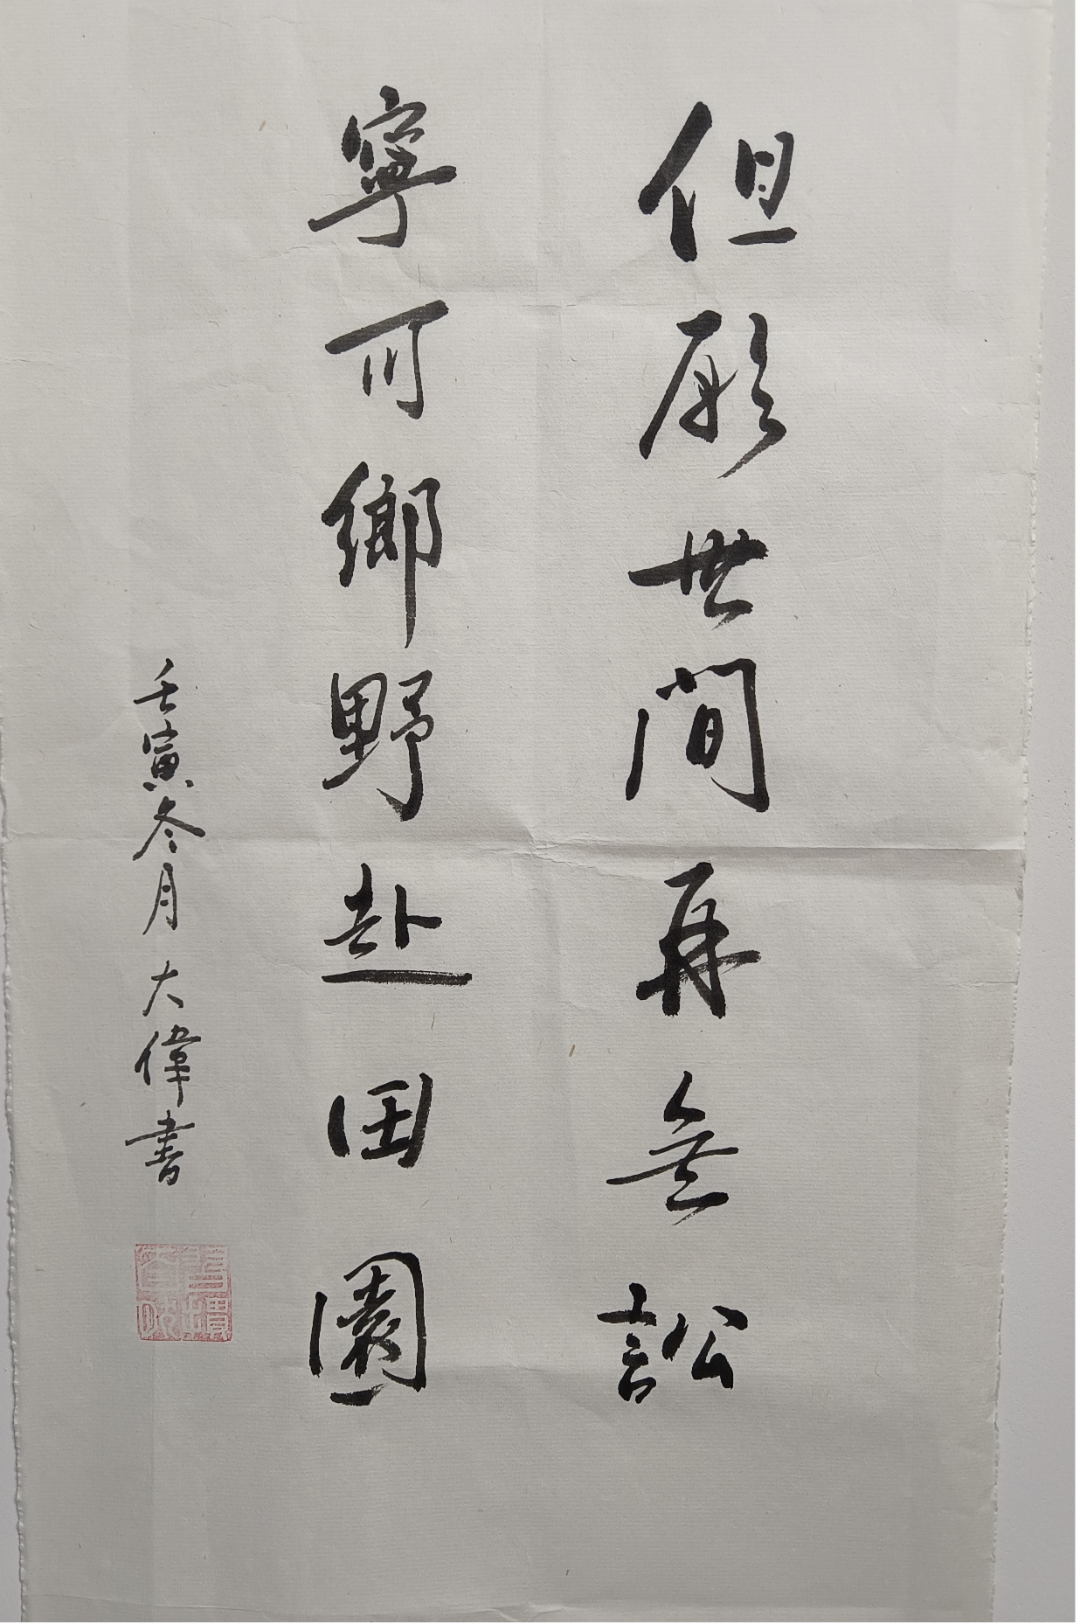 但願世間再無訟
寧可鄉野赴田園
壬寅冬月大偉書